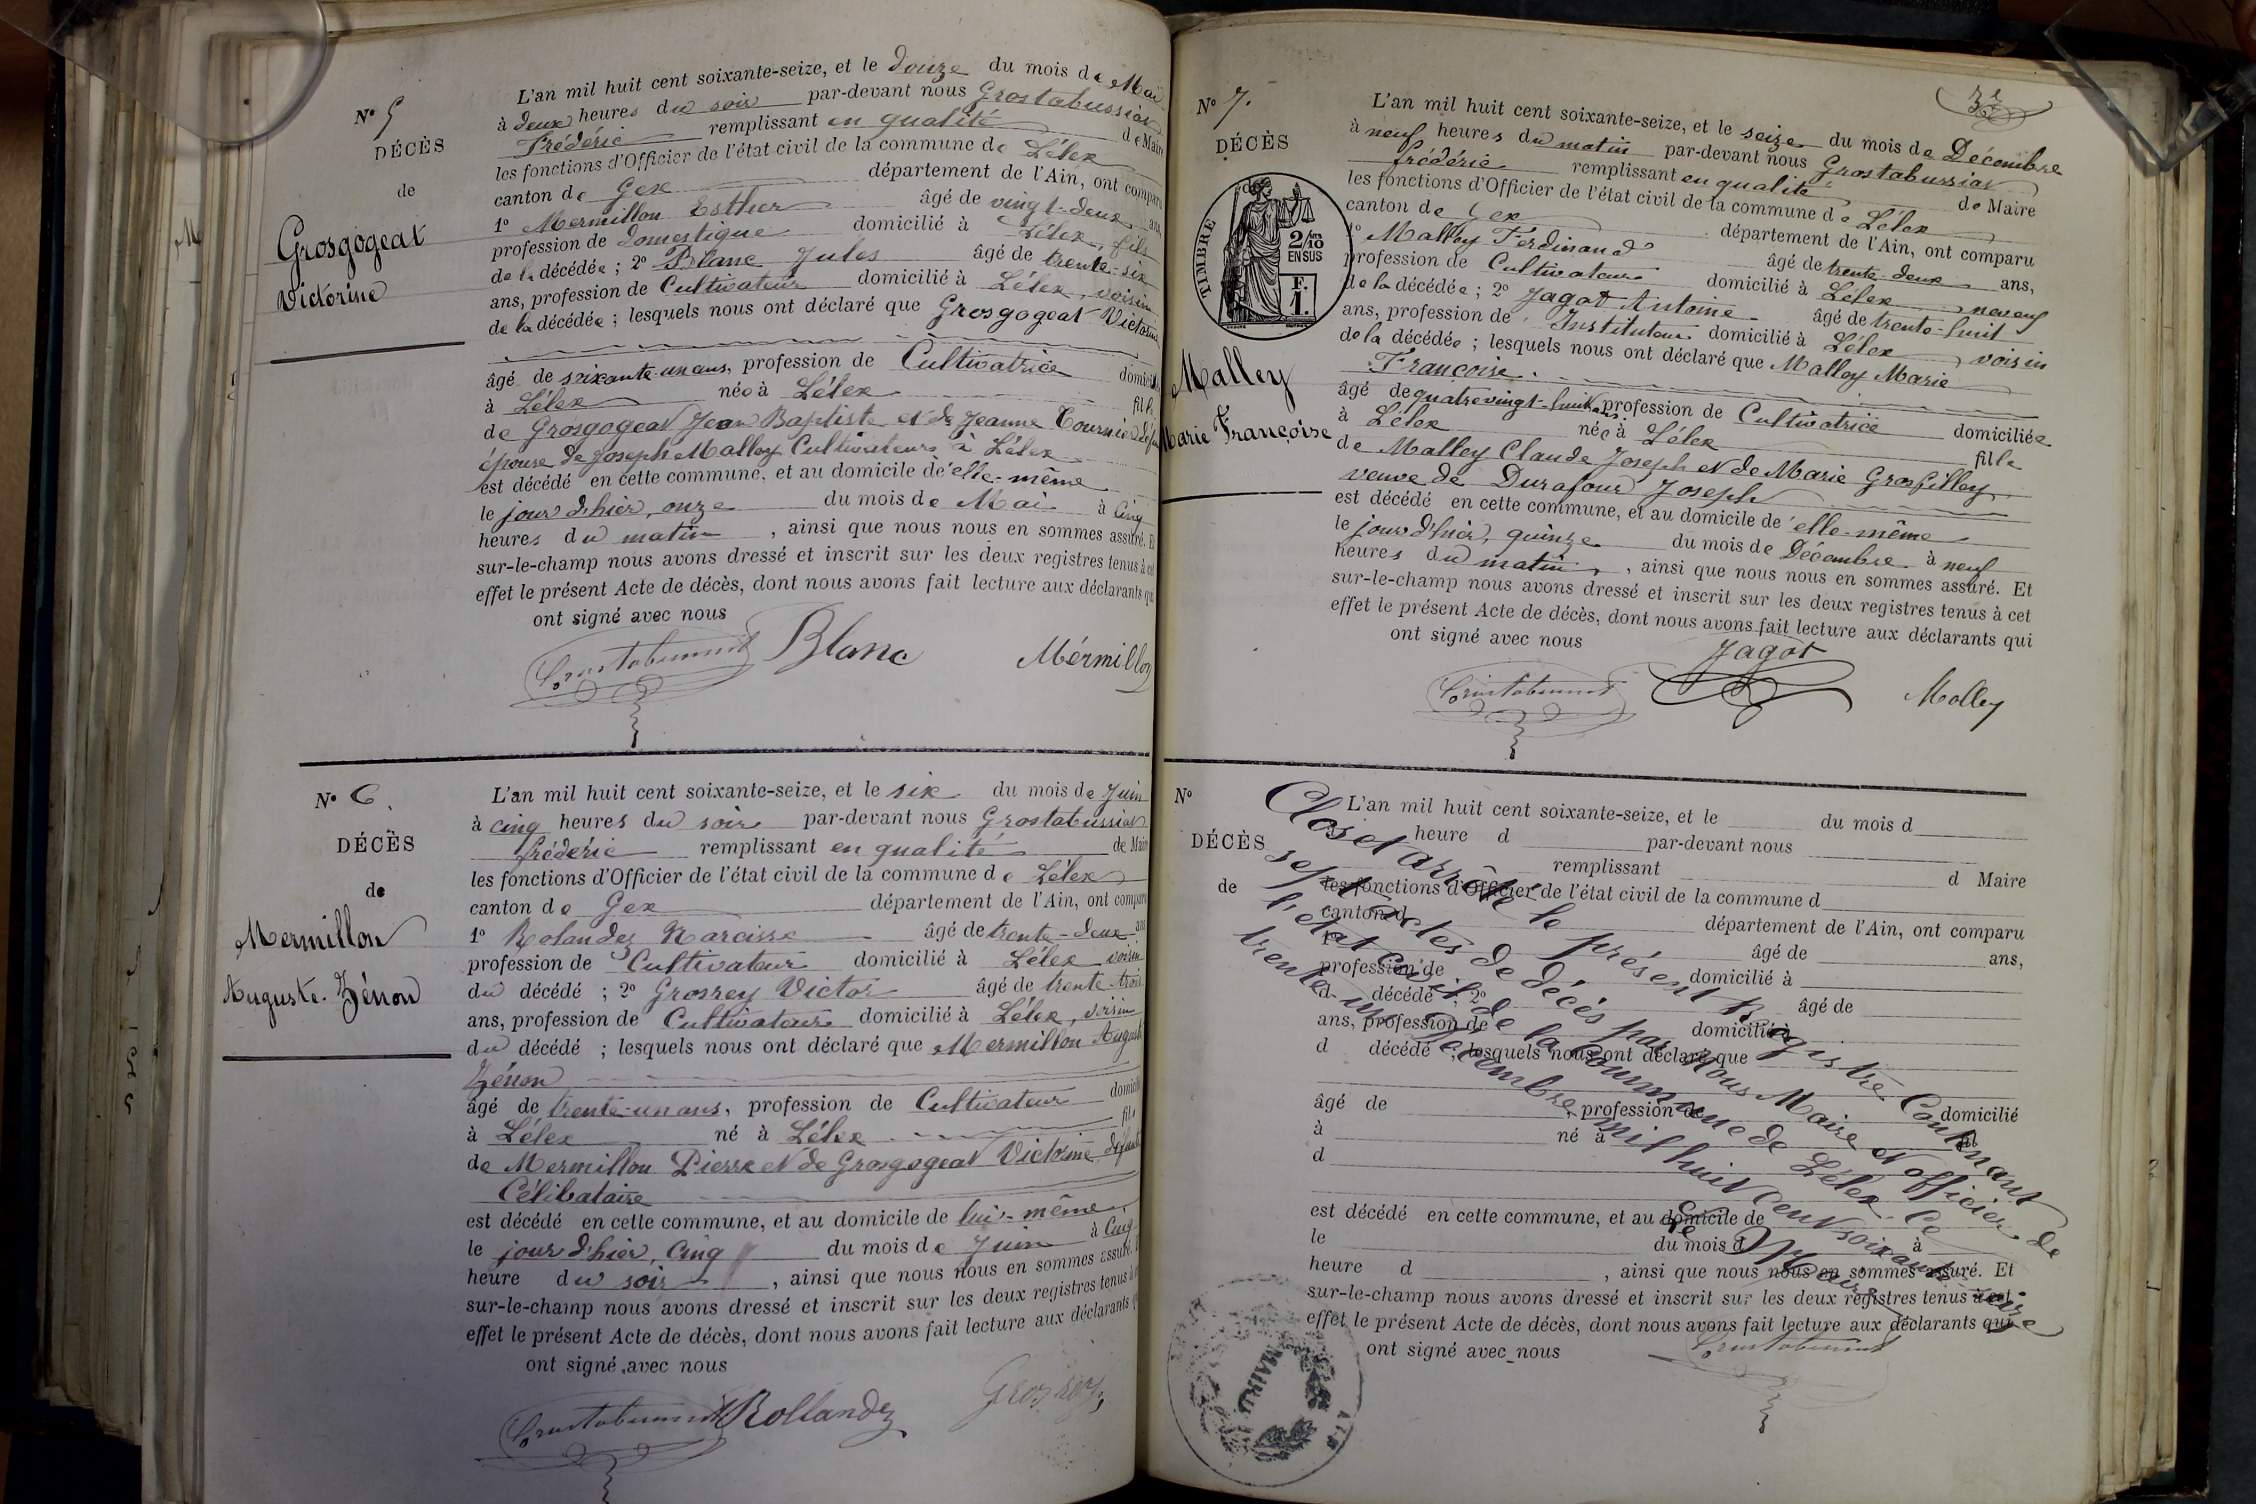 N° 5
DÉCÈS
de
Grosgogeat
Victorine
L'an mil huit cent soixante-seize, et le douze du mois de Mai
à deux heures du soir par-devant nous Grostabussiat
Frédéric remplissant en qualité de Maire
les fonctions d'Officier de l'état civil de la commune de Lélex
canton de Gex département de l'Ain, ont comparu
1° Mermillon Esther âgé de vingt-deux ans,
profession de domestique domicilié à Lélex, fils
de la décédée ; 2° Blanc Jules âgé de trente-six
ans, profession de Cultivateur domicilié à Lélex, voisin
de la décédée ; lesquels nous ont déclaré que Grosgogeat Victorine
âgé de soixante-un ans, profession de Cultivatrice domicil
à Lélex née à Lélex fille
de Grosgogeat Jean Baptiste et de Jeanne Tournier
épouse de Joseph Malley Cultivateurs à Lélex
est décédé en cette commune, et au domicile de elle-même
le jour d'hier, onze du mois de Mai à Cinq
heures du matin , ainsi que nous nous en sommes assuré. E
sur-le-champ nous avons dressé et inscrit sur les deux registres tenus à cet
effet le présent Acte de décès, dont nous avons fait lecture aux déclarants qui
ont signé avec nous
Grostabussiat Blanc Mérmillon
N° 6.
DÉCÈS
de
Mermillon
Auguste. Zénon
L'an mil huit cent soixante-seize, et le six du mois de Juin
à cinq heures du soir par-devant nous Grostabussiat
frédéric remplissant en qualité de Maire
les fonctions d'Officier de l'état civil de la commune de Lélex
canton de Gex département de l'Ain, ont comparu
1° Rolandez Narcisse âgé de trente-deux ans
profession de Cultivateur domicilié à Lélex voisin
du décédé ; 2° Grosrey Victor âgé de trente-trois
ans, profession de Cultivateur domicilié à Lélex, voisin
du décédé ; lesquels nous ont déclaré que Mermillon Auguste
Zénon
âgé de trente-un ans, profession de Cultivateur domicilié
à Lélex né à Lélex fils
de Mermillon Pierre et de Grosgogeat Victorine défunte
Célibataire
est décédé en cette commune, et au domicile de lui-même,
le jour d'hier, Cinq du mois de Juin à Cinq
heure du soir , ainsi que nous nous en sommes assuré. E
sur-le-champ nous avons dressé et inscrit sur les deux registres tenus à cet
effet le présent Acte de décès, dont nous avons fait lecture aux déclarants q
ont signé avec nous
Grostabussiat Rollandez Grosrey
N° 7.
DÉCÈS
de
TIMBRE
2/10 EN SUS
F. 1.
Malley
Marie Françoise
L'an mil huit cent soixante-seize, et le seize du mois de Décembre
à neuf heures du matin par-devant nous Grostabussiat
frédéric remplissant en qualité de Maire
les fonctions d'Officier de l'état civil de la commune de Lélex
canton de Gex département de l'Ain, ont comparu
1° Malley Ferdinand âgé de trente-deux ans,
profession de Cultivateur domicilié à Lélex neveu
de la décédée ; 2° Jagot Antoine âgé de trente-huit
ans, profession de Instituteur domicilié à Lélex voisin
de la décédée ; lesquels nous ont déclaré que Malley Marie
Françoise.
âgé de quatre vingt-huit ans profession de Cultivatrice domiciliée
à Lélex née à Lélex fille
de Malley Claude Joseph et de Marie Grosfilley
veuve de Durafour Joseph
est décédé en cette commune, et au domicile de elle-même
le jour d'hier, quinze du mois de Décembre à neuf
heures du matin , ainsi que nous nous en sommes assuré. Et
sur-le-champ nous avons dressé et inscrit sur les deux registres tenus à cet
effet le présent Acte de décès, dont nous avons fait lecture aux déclarants qui
ont signé avec nous
Grostabussiat Jagot Malley
N°
DÉCÈS
de
L'an mil huit cent soixante-seize, et le du mois d
heure d par-devant nous
remplissant d Maire
les fonctions d'Officier de l'état civil de la commune d
canton d département de l'Ain, ont comparu
1° âgé de ans,
profession de domicilié à
d décédé ; 2° âgé de
ans, profession de domicilié à
d décédé ; lesquels nous ont déclaré que
âgé de , profession de domicilié
à né à fil
d
est décédé en cette commune, et au domicile de
le du mois d à
heure d , ainsi que nous nous en sommes assuré. Et
sur-le-champ nous avons dressé et inscrit sur les deux registres tenus à cet
effet le présent Acte de décès, dont nous avons fait lecture aux déclarants qui
ont signé avec nous
Clos et arrêté le présent Registre Contenant
sept actes de décès par nous Maire et officier de
l'état Civil de la Commune de Lélex. Ce
trente-un Décembre mil huit cent soixante-seize
Le Maire
Grostabussiat
MAIRIE